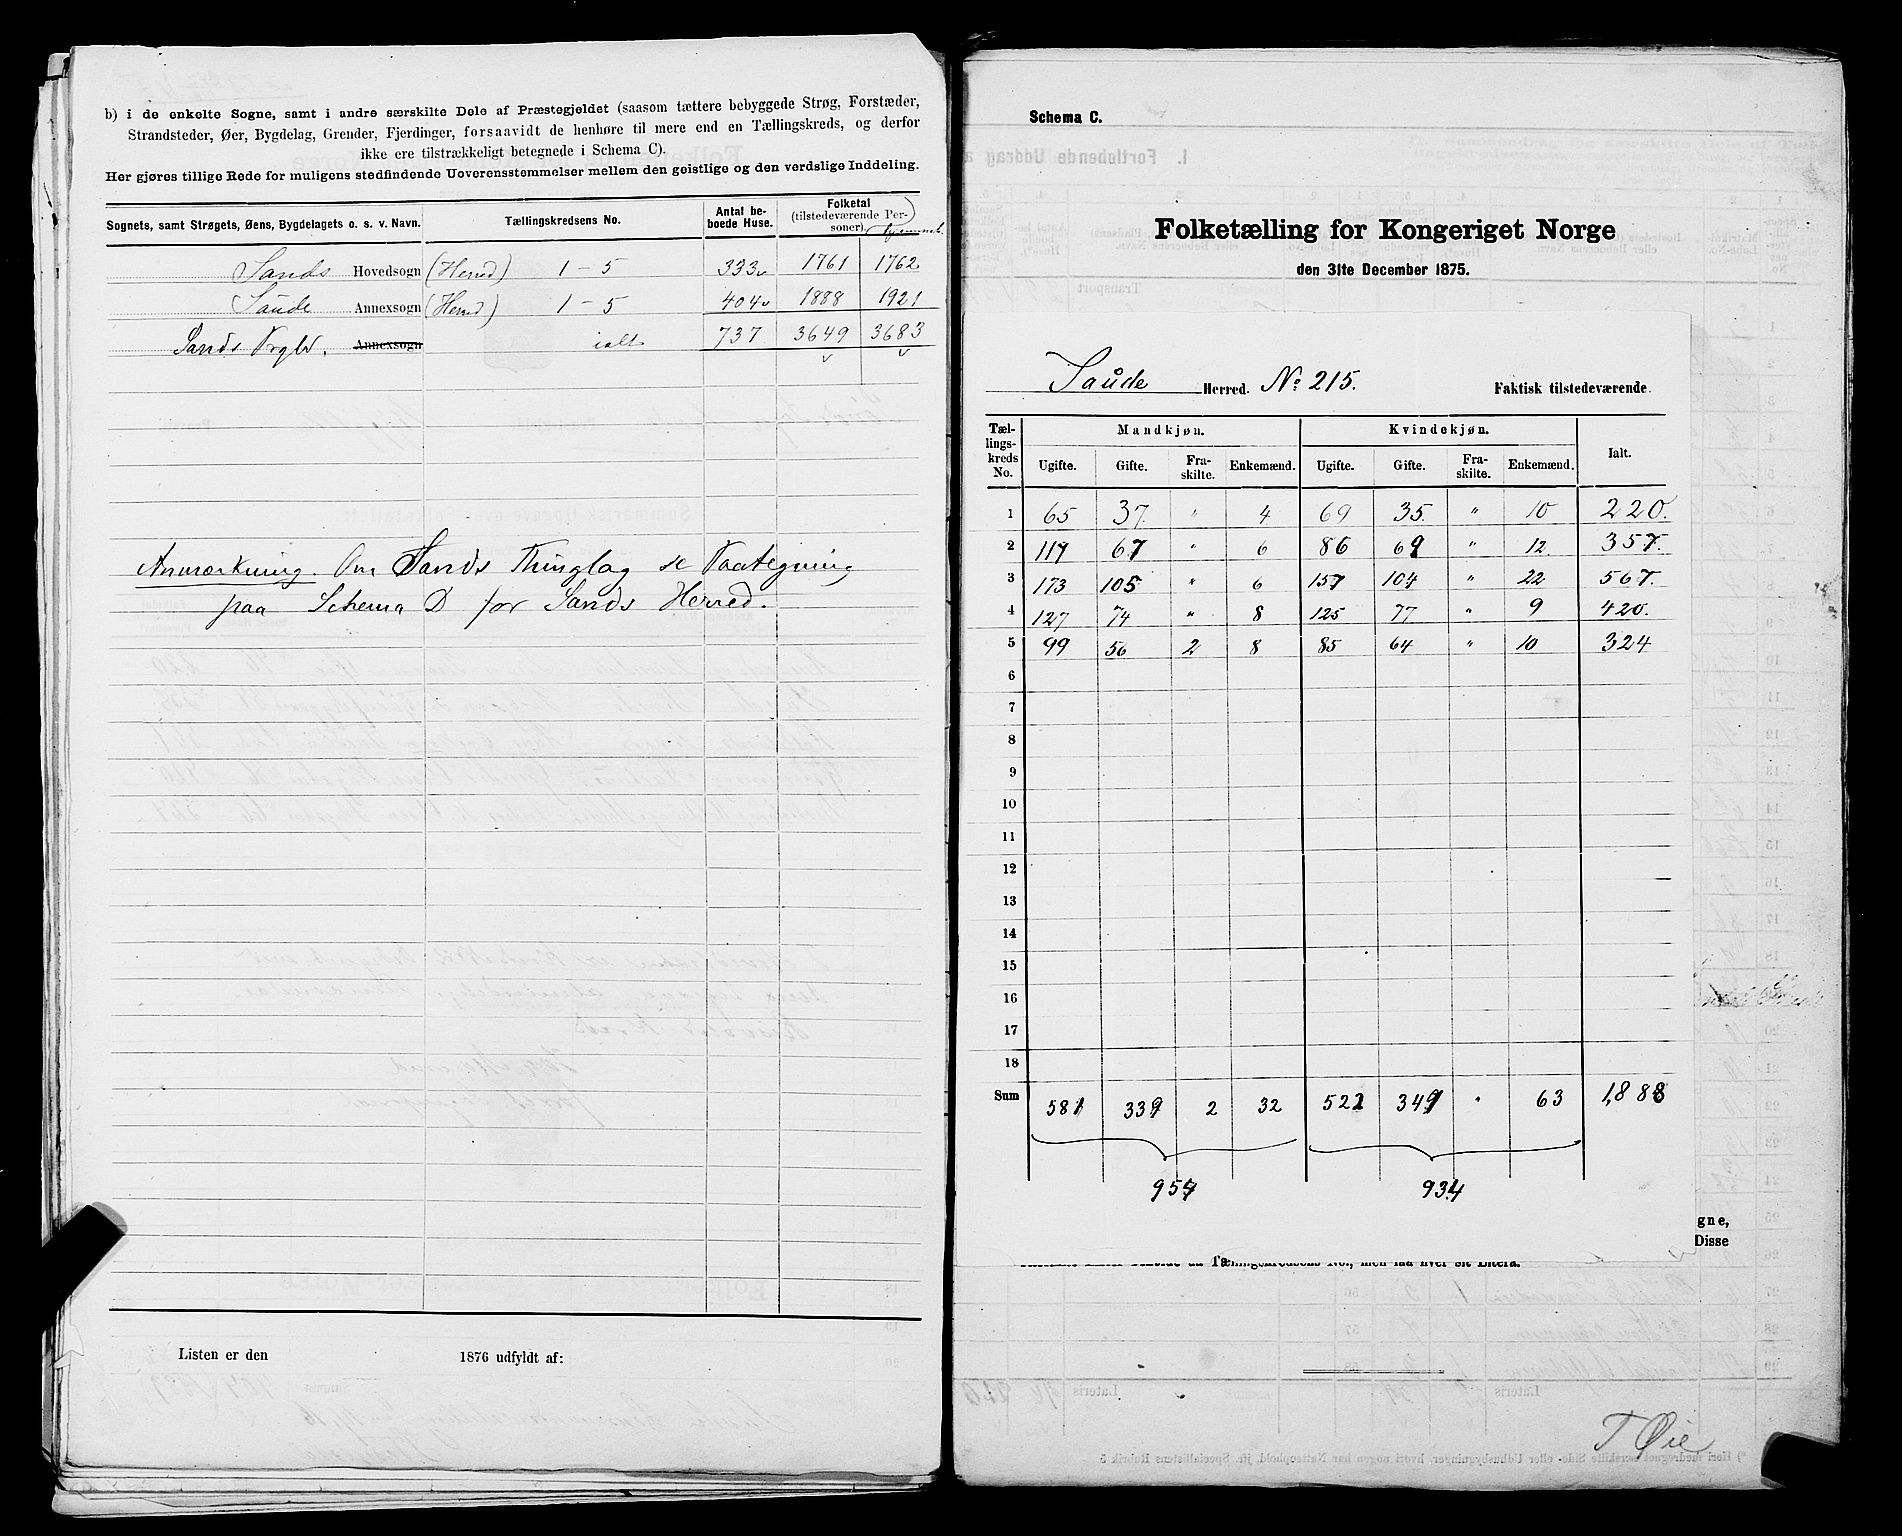 b) i de enkelte Sogne, samt i andre særskilte Dele af Præstegjeldet (saasom tættere bebyggede Strøg, Forstæder,
Strandsteder, Øer, Bygdelag, Grender, Fjerdinger, forsaavidt de henhøre til mere end en Tællingskreds, og derfor
ikke ere tilstrækkeligt betegnede i Schema C).
Her gjøres tillige Rede for muligens stedfindende Uoverensstemmelser mellem den geistlige og den verdslige Inddeling.
Sognets, samt Strøgets, Øens, Bygdelagets o. s. v. Navn. Tællingskredsens No. Antal beboede Huse. Folketal (tilstedeværende Personer).
Sands Hovedsogn (Herred) 1 - 5 333 1761 1762
Saude Annexsogn (Herred) 1 - 5 404 1888 1921
Sands Prgld. Annexsogn ialt 737 3649 3683
Anmærkning. Om Sands Thinglag se Paategning
paa Schema D for Sands Herred.
Listen er den 1876 udfyldt af:
Schema C.
Folketælling for Kongeriget Norge
den 31te December 1875.
Saude Herred. No 215. Faktisk tilstedeværende.
Tællingskreds No. Mandkjøn. Kvindekjøn. Ialt.
Ugifte. Gifte. Fraskilte. Enkemænd. Ugifte. Gifte. Fraskilte. Enkemænd.
1 65 37. " 4 69 35. " 10 220.
2 117 67 " 6 86 69 " 12 357.
3 173 105 " 6 157 104 " 22 567.
4 127 74 " 8 125 77 " 9 420.
5 99 56 2 8 85 64 " 10 324
6
7
8
9
10
11
12
13
14
15
16
17
18
Sum 581 339 2 32 522 349 " 63 1,888
954 934
gne,
Disse
Tællingskredsens No., men faa hver sit Litera.
T Øie